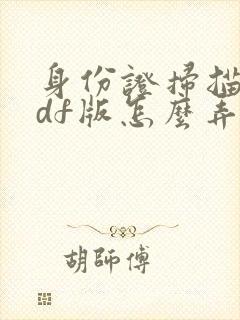 身份證掃描
df版怎麼弄
胡師傅